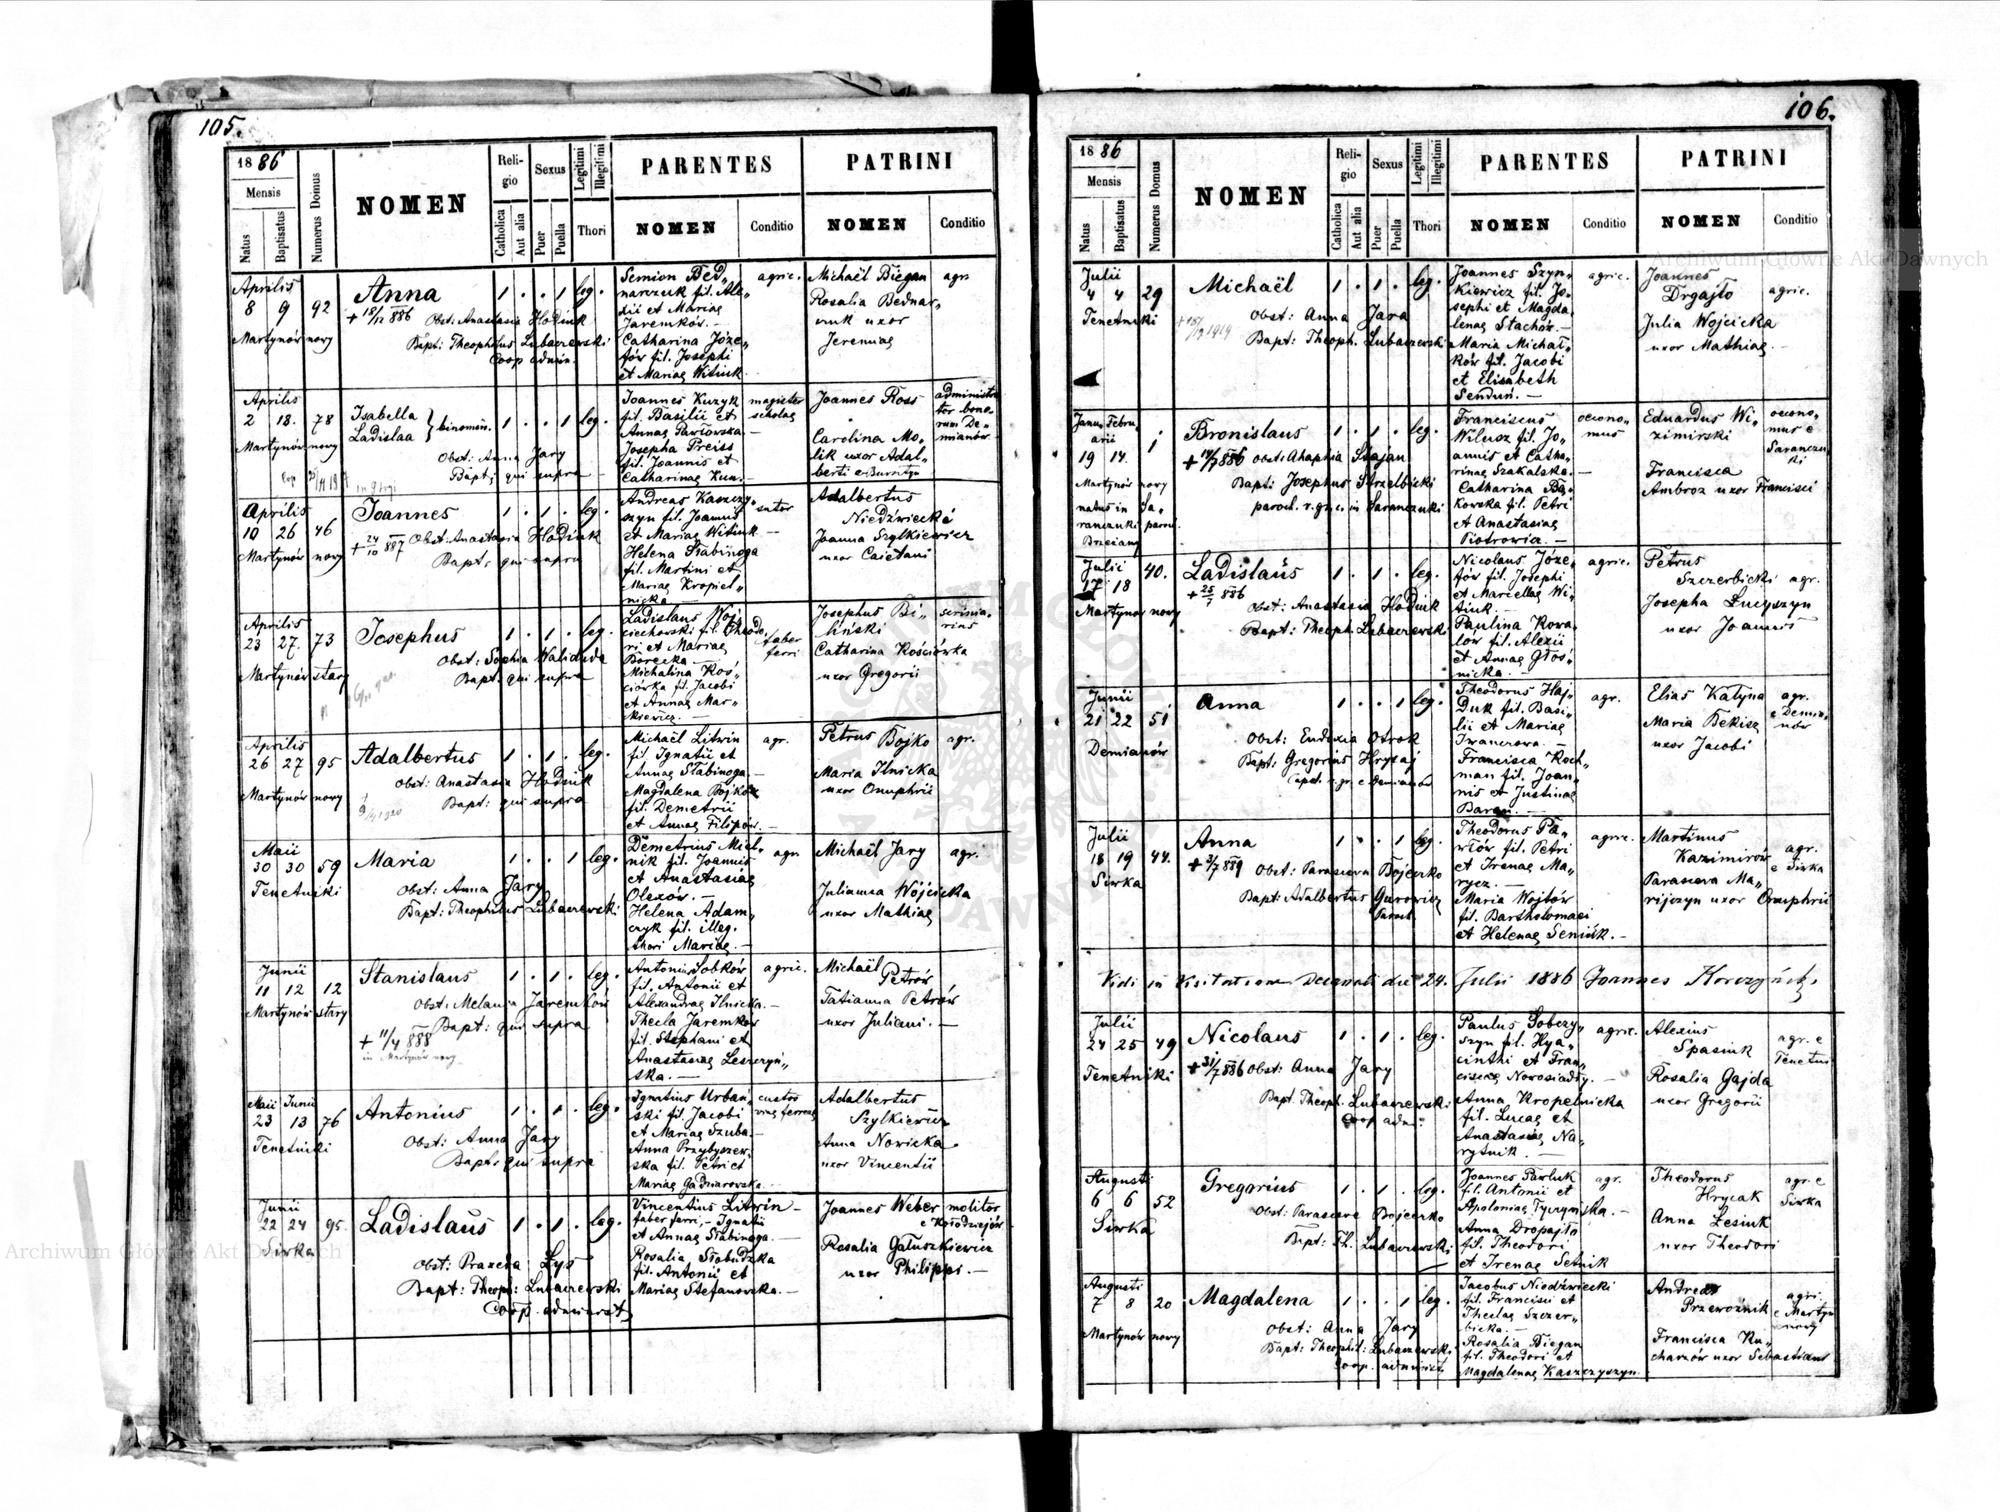 105.
18 86
Mensis
Natus
Baptisatus
Numerus Domus
NOMEN
Religio
Catholica
Aut alia
Sexus
Puer
Puella
Legitimi
Illegitimi
Thori
PARENTES
NOMEN
Conditio
PATRINI
NOMEN
Conditio
Aprilis
8 9 92
Martynów nowy
Anna
+ 18/12 886 Obst: Anastasia Hodiuk
Bapt: Theophilus Lubaczewski
Coop admin.
1 . . 1 leg.
Semion Bed„
narczuk fil. Ale„
xii et Mariae
Jaremków. —
Catharina Józe„
fów fil. Josephi
et Mariae Witiuk
agric.
Michaël Biegan
Rosalia Bednar„
czuk uxor
Jeremiae
agr.
Aprilis
2 18. 78
Martynów nowy
Isabella
Ladislaa } binomin.
Obst: Anna Jary
Bapt: qui supra
1 . . 1 leg.
Joannes Kuzyk
fil. Basilii et
Annae Pawłowska. —
Josepha Preiss
fil. Joannis et
Catharinae Kun. —
magister
scholae
Joannes Ross
Carolina Mo„
lik uxor Adal„
berti e Bursztyn
administra
tor bono„
rum De„
mianów
Aprilis
10 26 46
Martynów nowy
Joannes
+ 24/10 887 Obst: Anastasia Hodiuk
Bapt: qui supra
1 . 1 . leg.
Andreas Kaszczy„
szyn fil. Joannis
et Mariae Witiuk. —
Helena Słabinoga
fil. Martini et
Mariae Kropiel„
nicka
sutor
Adalbertus
Niedźwiecki
Joanna Szylkiewicz
uxor Caietani
Aprilis
23 27. 73
Martynów stary
Josephus
Obst: Sophia Waliduda
Bapt: qui supra
1 . 1 . leg.
Ladislaus Woj„
ciechowski fil. Theodo„
ri et Mariae
Borecka —
Michalina Koś„
ciówka fil. Jacobi
et Annae Mar„
kiewicz. —
faber
ferri
Josephus Bi„
liński
Catharina Kościówka
uxor Gregorii
scrinia„
rius
Aprilis
26 27 95
Martynów nowy
Adalbertus
Obst: Anastasia Hodiuk
Bapt: qui supra
1 . 1 . leg.
Michaël Litwin
fil. Ignatii et
Annae Słabinoga —
Magdalena Bojków
fil. Demetrii
et Annae Filipów. —
agr.
Petrus Bojko
Maria Ilnicka
uxor Onuphrii
agr.
Maii
30 30 59
Tenetniki
Maria
Obst: Anna Jary
Bapt: Theophilus Lubaczewski
1 . . 1 leg.
Demetrius Miel„
nik fil. Joannis
et Anastasiae
Olexów. —
Helena Adam„
czyk fil. illeg.
thori Mariae. —
agr.
Michaël Jary
Julianna Wójcicka
uxor Mathiae
agr.
Junii
11 12 12
Martynów stary
Stanislaus
Obst: Melania Jaremków
Bapt: qui supra
+ 11/4 888
in Martynów nowy.
1 . 1 . leg.
Antonius Sobków
fil. Antonii et
Alexandrae Ilnicka. —
Thecla Jaremków
fil. Stephani et
Anastasiae Leszczyń„
ska. —
agric.
Michaël
Petrów
Tatianna Petrów
uxor Juliani. —
Maii Junii
23 13 76
Tenetniki
Antonius
Obst: Anna Jary
Bapt: qui supra
1 . 1 . leg.
Ignatius Urbań„
ski fil. Jacobi
et Mariae Szuba. —
Anna Przybyszew„
ska fil. Petri et
Mariae Gadniarowska. —
custos
viae ferreae
Adalbertus
Szylkiewicz
Anna Nowicka
uxor Vincentii
Junii
22 24 95.
Siwka
Ladislaus
Obst: Praxeda Lys
Bapt: Theoph: Lubaczewski
Coop. administ.
1 . 1 . leg.
Vincentius Litwin —
faber ferri, — Ignatii
et Annae Słabinoga. —
Rosalia Słabudzka
fil. Antonii et
Mariae Stefanowska. —
Joannes Weber
Rosalia Gałuszkiewicz
uxor Philippi. —
molitor
e Kołodziejów
106.
18 86
Mensis
Natus
Baptisatus
Numerus Domus
NOMEN
Religio
Catholica
Aut alia
Sexus
Puer
Puella
Legitimi
Illegitimi
Thori
PARENTES
NOMEN
Conditio
PATRINI
NOMEN
Conditio
Julii
4 4 29
Tenetniki
Michaël
Obst: Anna Jara
Bapt: Theoph. Lubaczewski
1 . 1 . leg.
Joannes Szyn„
kiewicz fil. Jo„
sephi et Magda„
lenae Stachów. —
Maria Michał„
ków fil. Jacobi
et Elisabeth
Senduń. —
agric.
Joannes
Drgajło
Julia Wojcicka
uxor Mathiae. —
agric.
Janu Febru
arii
19 14. 1
Martynów nowy
natus in Sa„
ranczuki paroch.
Brzeciany
Bronislaus
+ 14/7 886 Obst: Ahaphia Stajan
Bapt: Josephus Strzelbicki
paroch. r. gr. c. in Saranczuki
1 . 1 . leg.
Franciscus
Wilusz fil. Jo„
annis et Catha„
rinae Szakalska. —
Catharina Bą„
kowska fil. Petri
et Anastasiae
Piotrowia. —
oecono„
mus
Eduardus Wi„
zimirski
Francisca
Ambroz uxor Francisci
oecono„
mus e
Saranczu„
ki
Julii
17 18 40.
Martynów nowy
Ladislaus
+ 25/7 886
Obst: Anastasia Hodiuk
Bapt: Theoph. Lubaczewski
1 . 1 . leg.
Nicolaus Józe„
fów fil. Josephi
et Marcellae Wi„
tiuk. —
Paulina Kowa„
lów fil. Alexii
et Annae Głoś„
nicka. —
agric.
Petrus
Szczerbicki
Josepha Lucyszyn
uxor Joannis
agr.
Junii
21 22 51
Demianów
Anna
Obst: Eudoxia Otrok
Bapt: Gregorius Hrycaj
1 . . 1 leg.
Theodorus Haj„
duk fil. Basi„
lii et Mariae
Iwanczowa. —
Francisca Koch„
man fil. Joan„
nis et Justinae
Baran. —
agr.
Elias Katyna
Maria Bekisz
uxor Jacobi
agr.
e Demia„
nów
Julii
18 19 44.
Siwka
Anna
+ 2/7 889 Obst: Parascewa Bojeczko
Bapt: Adalbertus Gurowicz
Paroch.
1 . . 1 leg.
Theodorus Pa„
wlów fil. Petri
et Irenae Ma„
rycz. —
Maria Wojtów
fil. Bartholomaei
et Helenae Seniuk. —
agric.
Martinus
Kazimirów
Parascewa Ma„
rijczyn uxor Onuphrii
agr.
e Siwka
Vidi in Visitatione Decanali die 24. Julii 1886 Joannes Korczyński
Julii
24 25 49
Tenetniki
Nicolaus
+ 31/7 886 Obst: Anna Jary
Bapt. Theoph. Lubaczewski
Coop adm:
1 . 1 . leg.
Paulus Sobczy„
szyn fil. Hya„
cinthi et Fran„
ciscae Nowosiadły. —
Anna Kropelnicka
fil. Lucae et
Anastasiae Na„
rytnik. —
agric.
Alexius
Spasiuk
Rosalia Gajda
uxor Gregorii
agr. e
Tenetni
Augusti
6 6 52
Siwka
Gregorius
Obst: Parascewe Bojeczko
Bapt: Th. Lubaczewski
1 . 1 . leg.
Joannes Pawluk
fil. Antonii et
Apoloniae Tyczyńska. —
Anna Dropajło
fil. Theodori
et Irenae Setnik
agr.
Theodorus
Hrycak
Anna Łesiuk
uxor Theodori
agr. e
Siwka
Augusti
7 8 20
Martynów nowy
Magdalena
Obst: Anna Jary
Bapt: Theophil: Lubaczewski
Coop. administ.
1 . . 1 leg.
Jacobus Niedźwiecki
fil. Francisci et
Theclae Szczer„
bicka. —
Rosalia Biegan
fil. Theodori et
Magdalenae Kaszczyszyn.
Andreas
Przewoźnik
Francisca Ku„
charzów uxor Sebastiani
agri.
e Martyn
nowy
Archiwum Główne Akt Dawnych
Archiwum Główne Akt Dawnych